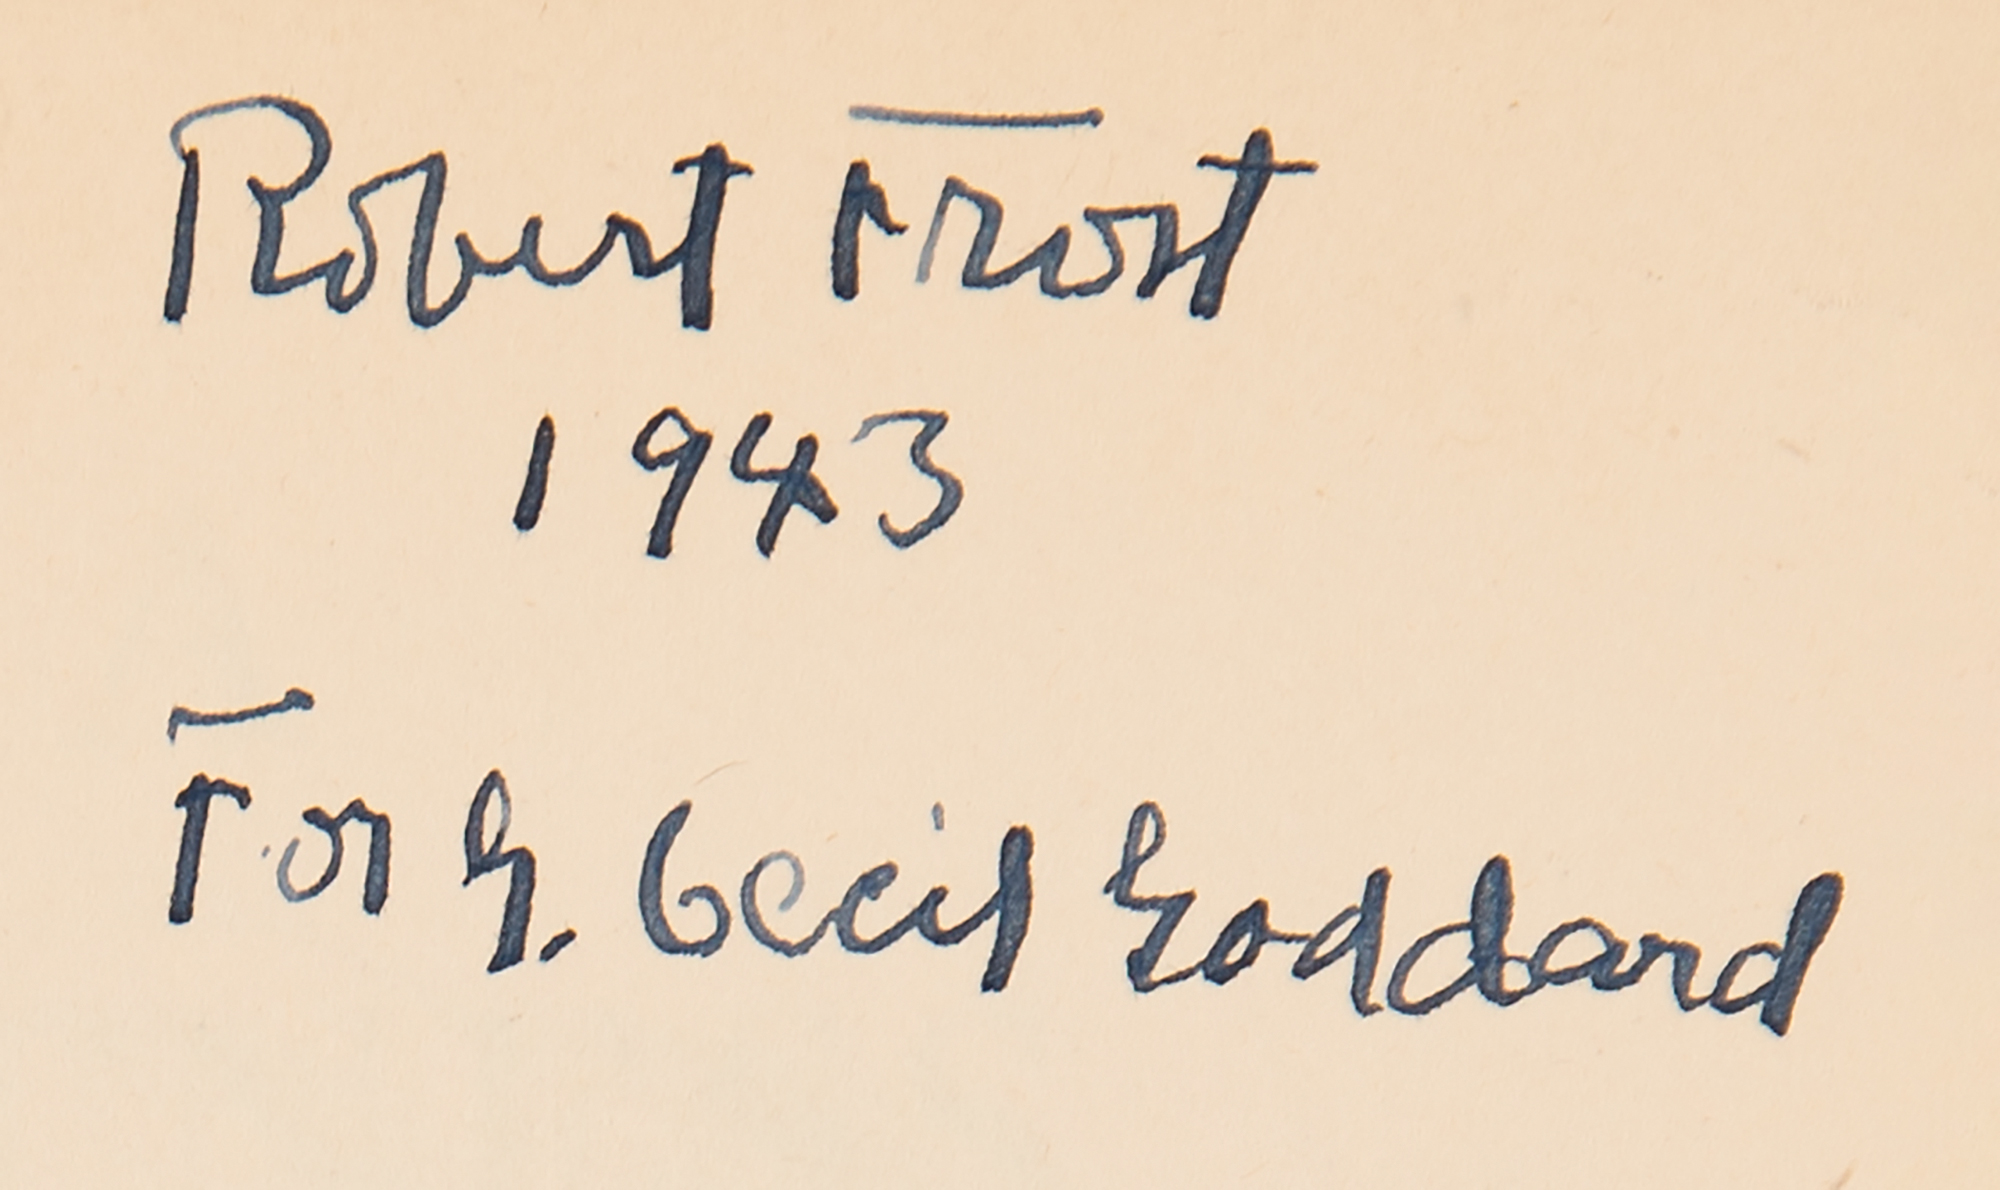 Robert Frost
1943
For G. Cecil Goddard